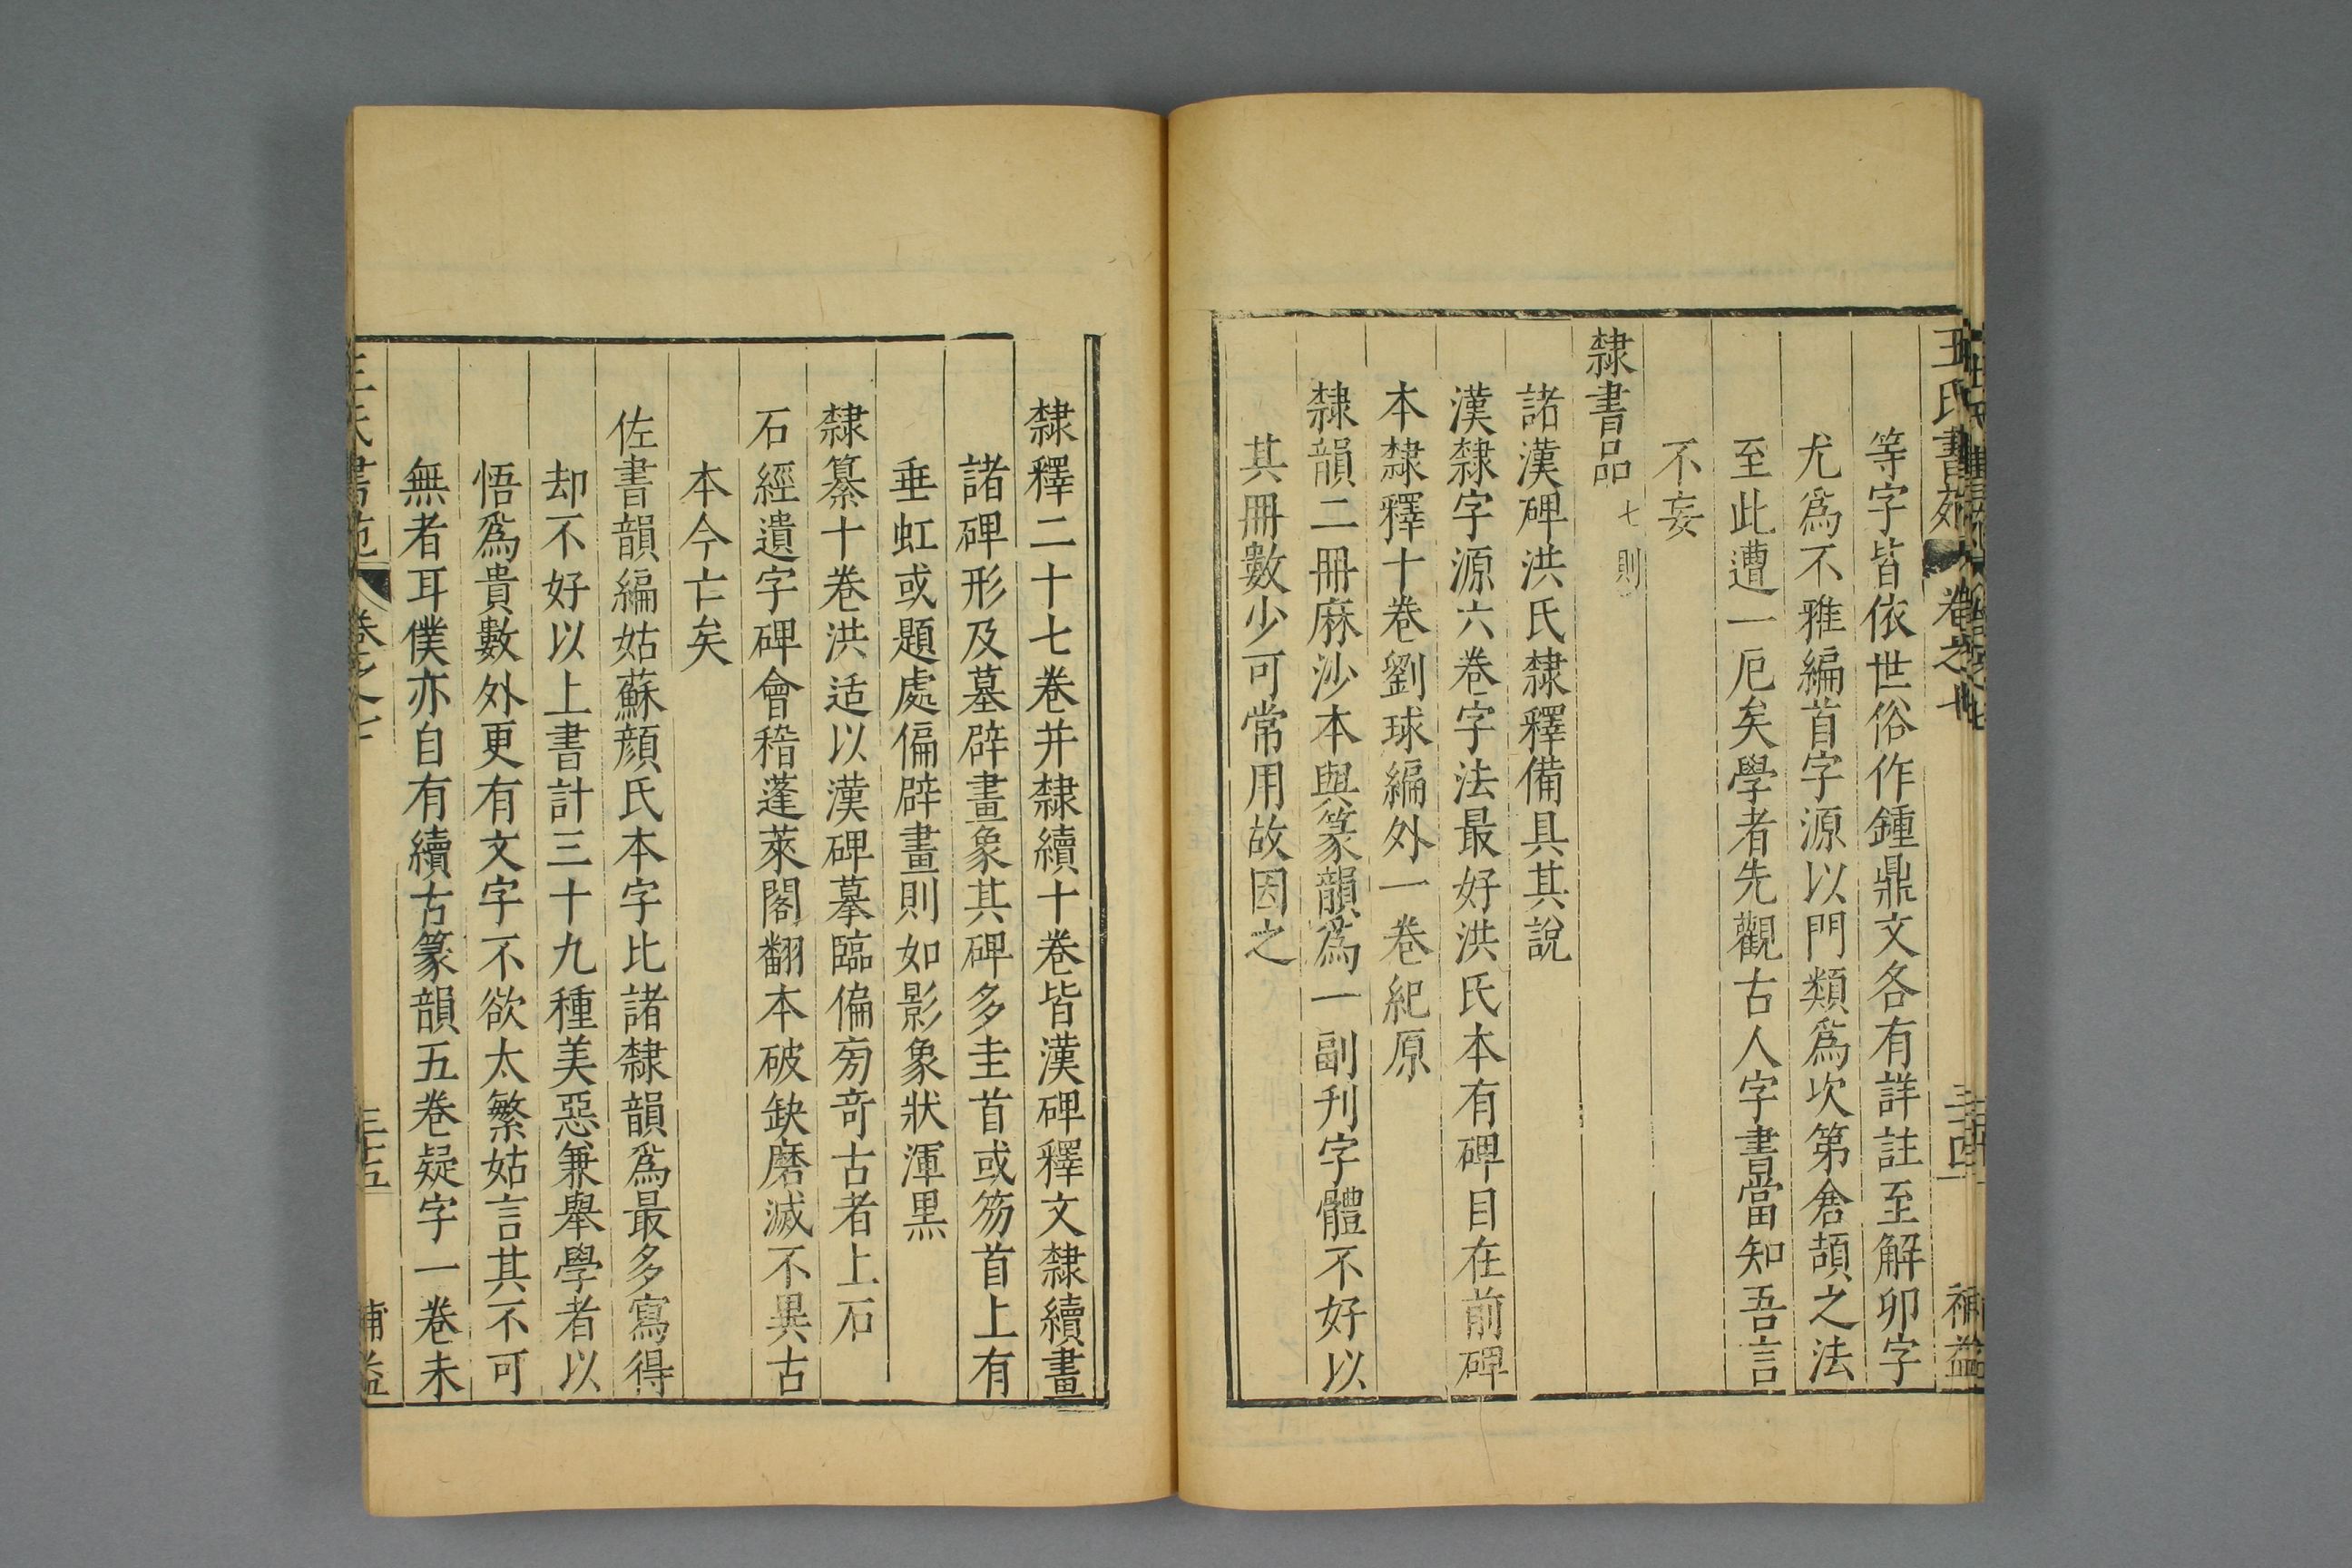 王氏書苑 卷之七 三十四 補益
等字皆依世俗作鍾鼎文各有詳註至解卯字
尤爲不雅編首字源以門類爲次第倉頡之法
至此遭一厄矣學者先觀古人字書當知吾言
不妄
隸書品 七則
諸漢碑洪氏隸釋備具其說
漢隸字源六卷字法最好洪氏本有碑目在前碑
本隸釋十卷劉球編外一卷紀原
隸韻二冊麻沙本與篆韻爲一副刋字體不好以
其冊數少可常用故因之
隸釋二十七卷并隸續十卷皆漢碑釋文隸續畫
諸碑形及墓辟畫象其碑多圭首或笏首上有
垂虹或題處偏辟畫則如影象狀渾黒
隸纂十卷洪适以漢碑摹臨偏㫄竒古者上石
石經遺字碑會稽蓬萊閣翻本破缺磨滅不異古
本今亡矣
佐書韻編姑蘇顔氏本字比諸隸韻爲最多寫得
却不好以上書計三十九種美惡兼舉學者以
悟爲貴數外更有文字不欲太繁姑言其不可
無者耳僕亦自有續古篆韻五卷疑字一卷未
王氏書苑 卷之七 三十五 補益